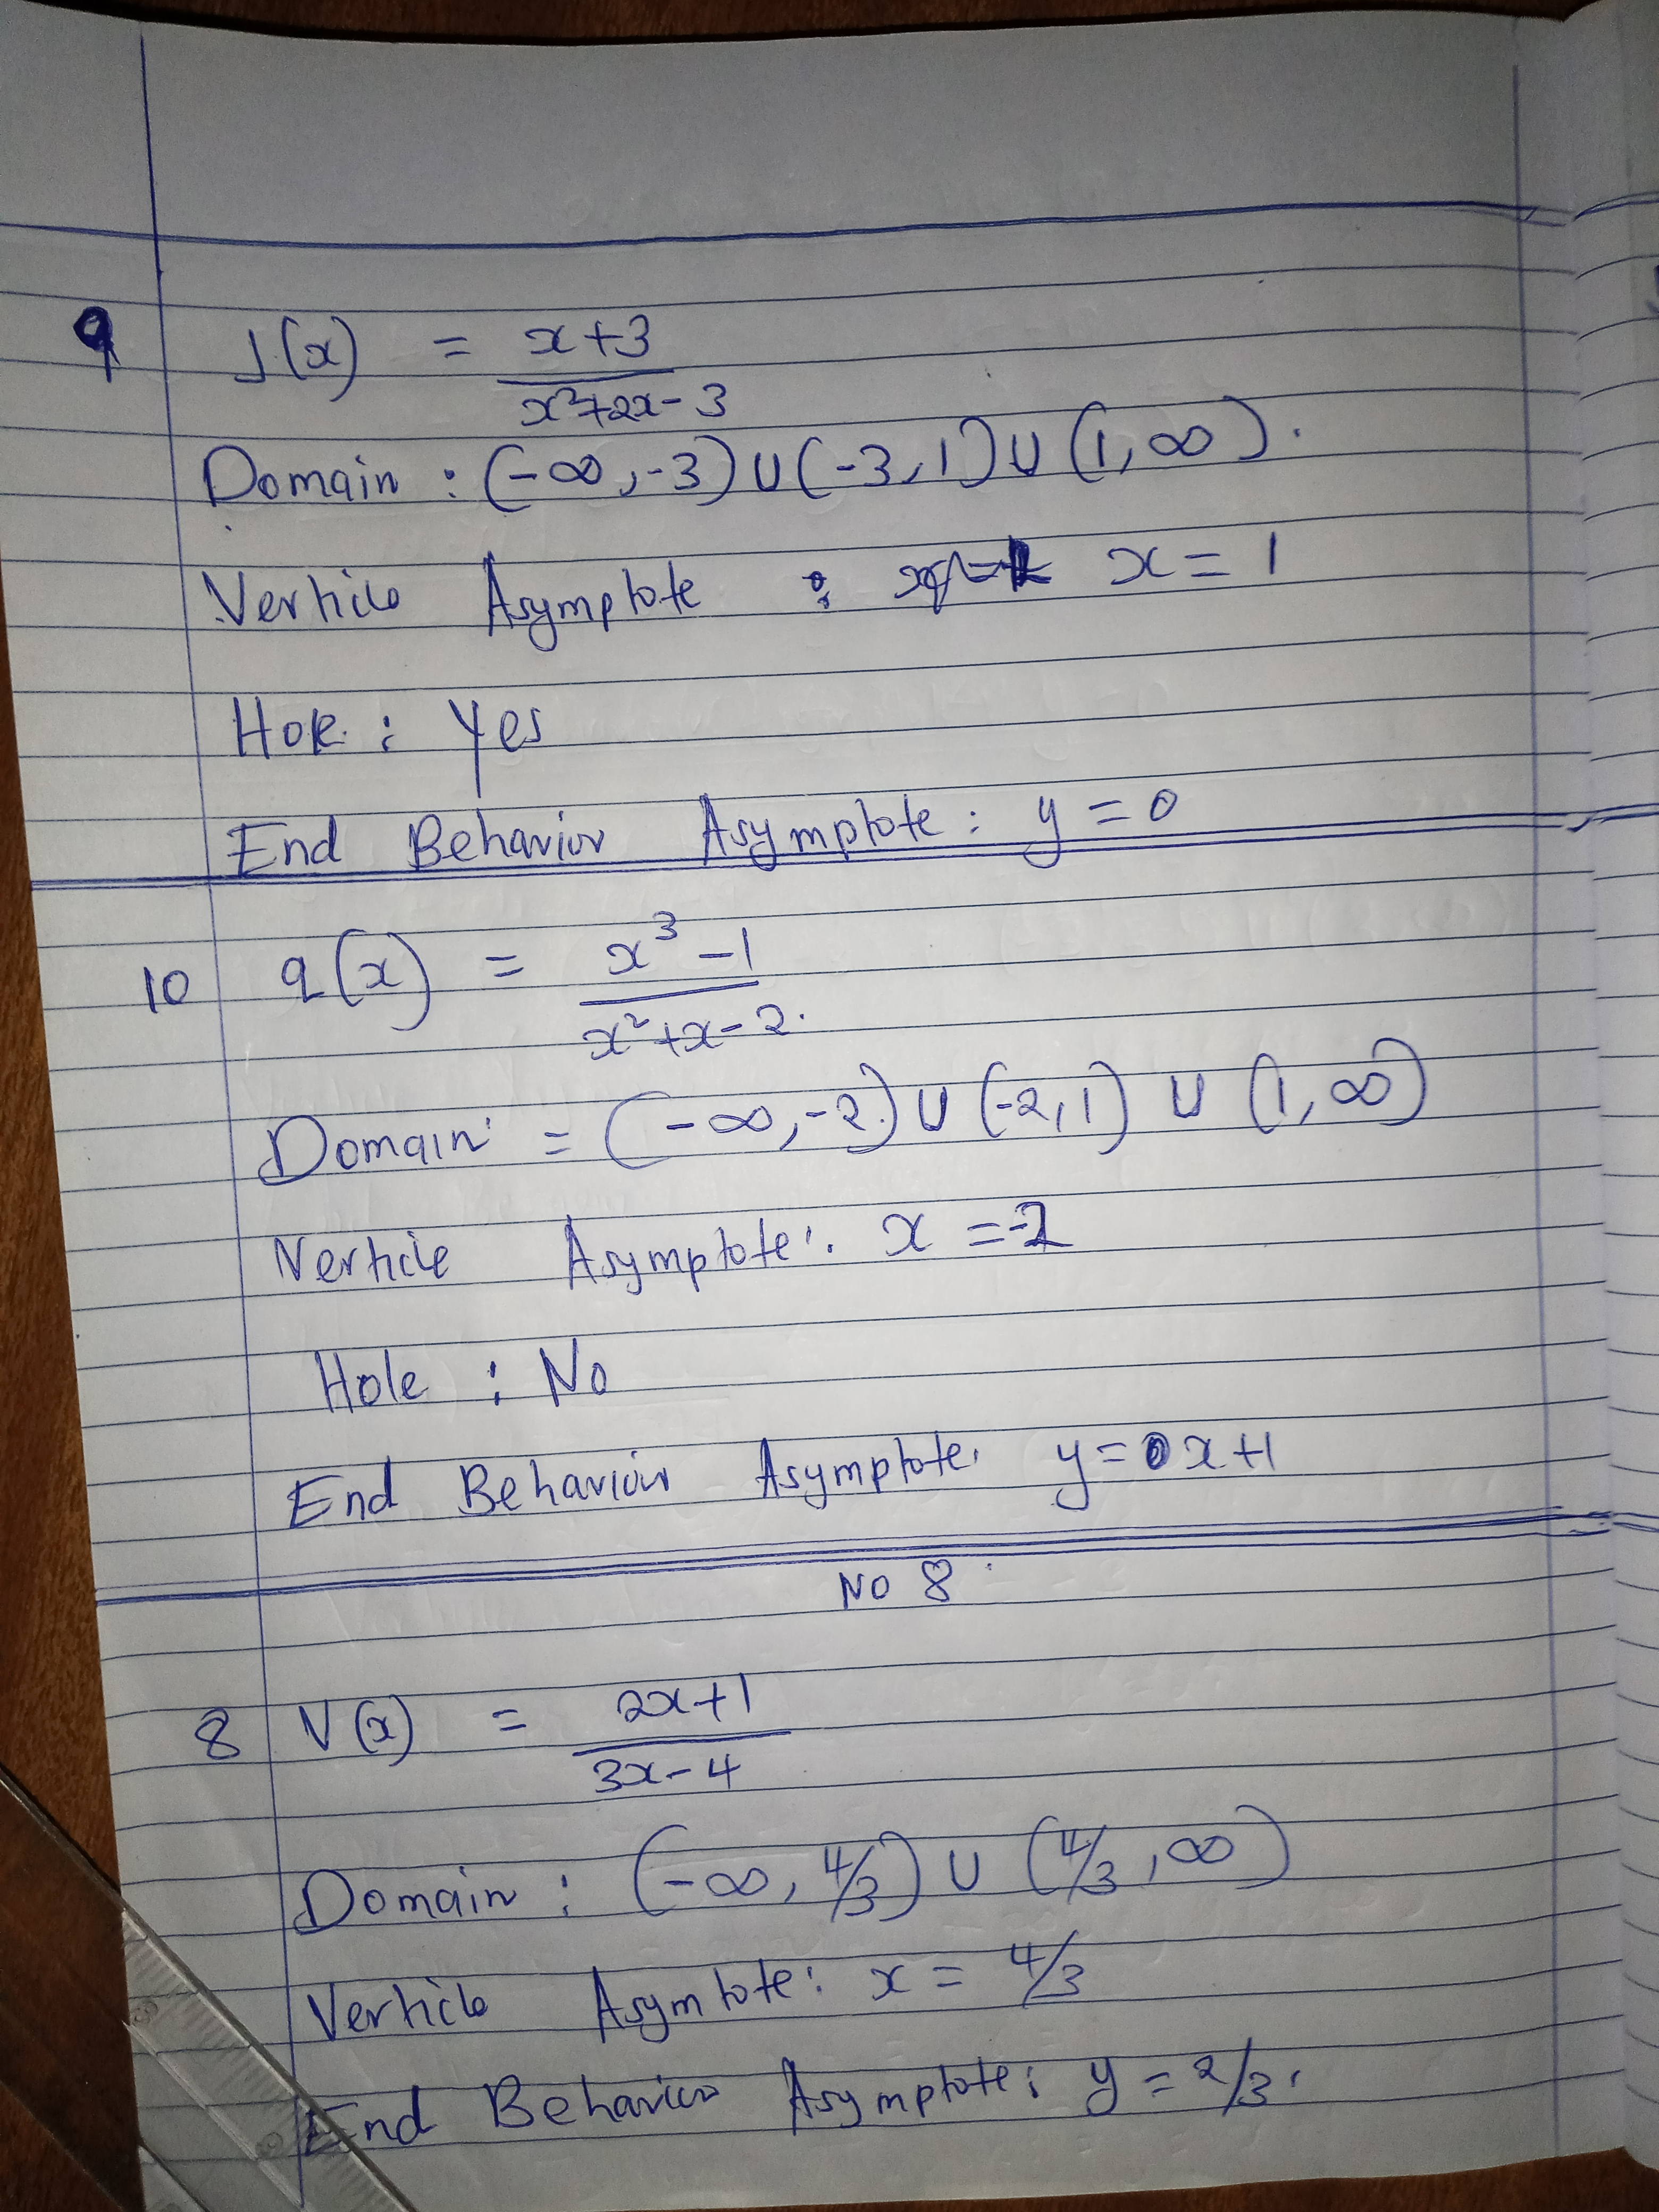 9 J(x) = x+3
x²+2x-3
Domain : (-∞,-3) ∪ (-3,1) ∪ (1,∞).
Verticle Asymptote : x = 1
Hole : Yes
End Behavior Asymptote : y = 0
10 q(x) = x³ -1
x²+x-2.
Domain = (-∞,-2) ∪ (-2,1) ∪ (1,∞)
Verticle Asymptote: x = -2
Hole : No
End Behavior Asymptote. y = x+1
NO 8
8 V(x) = 2x+1
3x-4
Domain : (-∞, 4/3) ∪ (4/3, ∞)
Verticle Asymtote: x = 4/3
End Behavior Asymptote: y = 2/3.